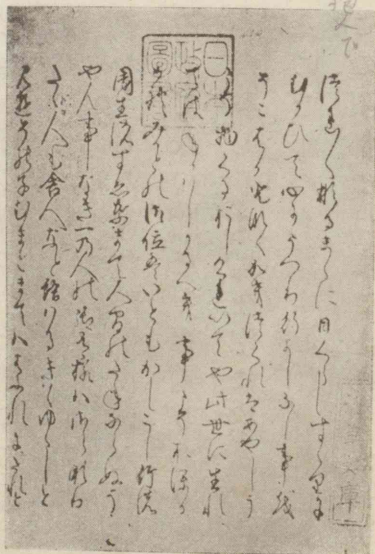 つれ〱なるまゝに日くらしすゝりに
むかひて心にうつり行よしなし事を
そこはかとなくかきつくれはあやしう
こそ物くるおしけれいてや此世に生れ
てはねかはしかるへき事こそおほか
めれみかとの御位はいともかしこし竹の
園生の末葉まて人間のたねならぬそ
やん事なき一の人の御有様はさら也
たゝ人も舎人なと給はるきははゆゝしと
見ゆその子むまこまてははふれにたれと